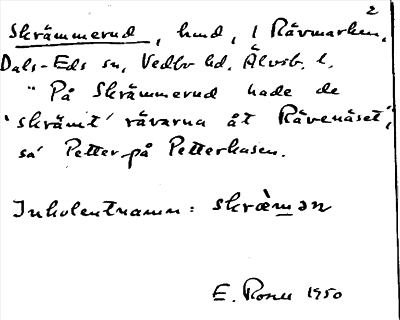 2
Skrämmerud, hmd, i Rävmarken,
Dals-Eds sn, Vedbo hd. Älvsb. l.
"På Skrämmerud hade de
'skrämt' rävarna åt Rävenäset",
sa' Petter på Petterhusen.
Inkolentnamn: skrä̀mən
E. 1950